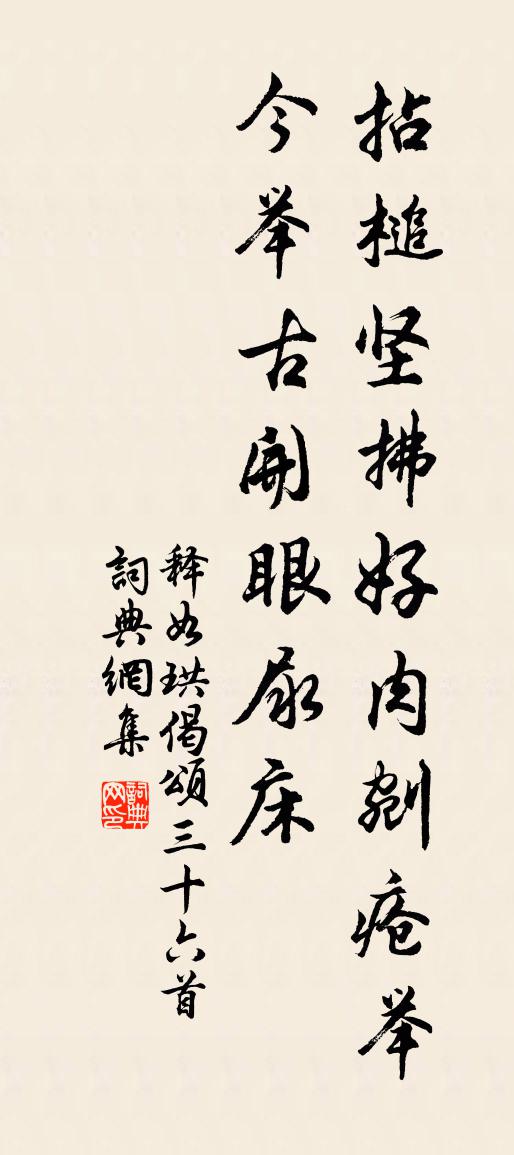 拈槌坚拂好肉剜疮举
今举古开眼尿床
释如珙偈颂三十六首
詞典網集
詞典网印